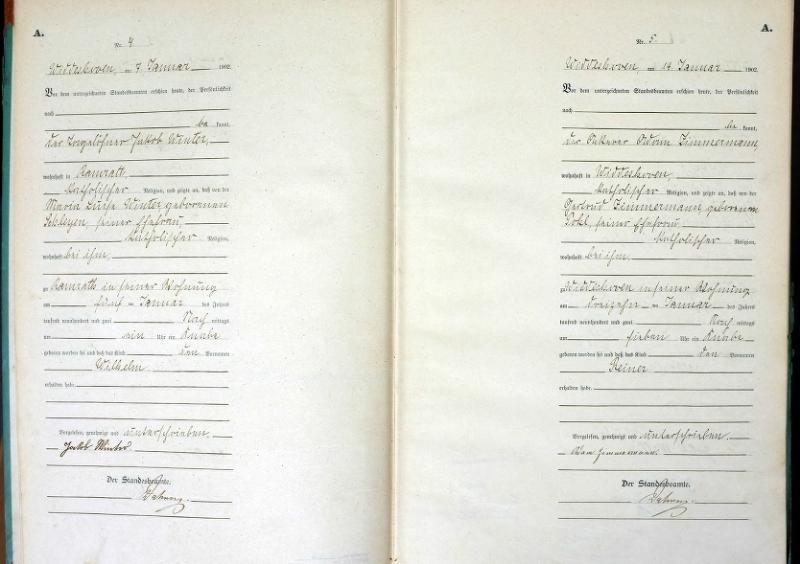 A.
Nr. 4
Widdeshoven, am 7 Januar 1902.
Vor dem unterzeichneten Standesbeamten erschien heute, der Persönlichkeit
nach
be kannt,
der Tagelöhner Jakob Winter,
wohnhaft in Ramrath,
katholischer Religion, und zeigte an, daß von der
Maria Luise Winter geborenen
seiner Ehefrau,
katholischer Religion,
wohnhaft bei ihm,
zu Ramrath in seiner Wohnung
am fünf ten Januar des Jahres
tausend neunhundert und zwei Nach mittags
um ein Uhr ein Knabe
geboren worden sei und daß das Kind den Vornamen
Wilhelm
erhalten habe.
Vorgelesen, genehmigt und unterschrieben.
Jacob Winter
Der Standesbeamte.
A.
Nr. 5.
Widdeshoven, am 14 Januar 1902.
Vor dem unterzeichneten Standesbeamten erschien heute, der Persönlichkeit
nach
be kannt,
der Ackerer Adam Zimmermann,
wohnhaft in Widdeshoven,
katholischer Religion, und zeigte an, daß von der
Gertrud Zimmermann geborenen
seiner Ehefrau
katholischer Religion,
wohnhaft bei ihm,
zu Widdeshoven in seiner Wohnung
am dreizehn ten Januar des Jahres
tausend neunhundert und zwei Nach mittags
um sieben Uhr ein Knabe
geboren worden sei und daß das Kind den Vornamen
Reiner
erhalten habe.
Vorgelesen, genehmigt und unterschrieben.
Adam Zimmermann.
Der Standesbeamte.